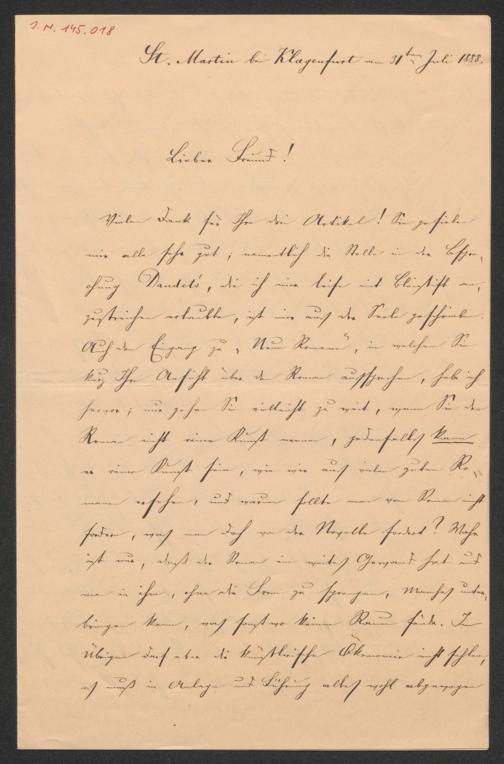 J. N. 145.018
St. Martin bei Klagenfurt am 31ten Juli 1888.
Lieber Freund!
Vielen Dank für Ihre drei Artikel! Sie gefielen
mir alle sehr gut; namentlich die Stelle in der Bespre-
chung Dandolo's, die ich mir leise mit Bleistift an-
zustreichen erlaubte, ist mir aus der Seele geschrieben.
Auch der Eingang zu „Neue Romane", in welchem Sie
kurz Ihre Ansicht über den Roman aussprechen, hebe ich
hervor; nur gehen Sie vielleicht zu weit, wenn Sie den
Roman nicht eine Kunst nennen, jedenfalls kann
er eine Kunst sein, wie wir aus vielen guten Ro-
manen ersehen, und warum sollte man vom Roman nicht
fordern, was man doch von der Novelle fordert? Wahr
ist nur, daß der Roman ein weites Gewand hat und
man in ihm, ohne die Form zu sprengen, Manches unter-
bringen kann, was sonst wo keinen Raum fände. Im
Übrigen darf aber die künstlerische Ökonomie nicht fehlen,
es muß in Anlage und Führung alles wohl abgewogen